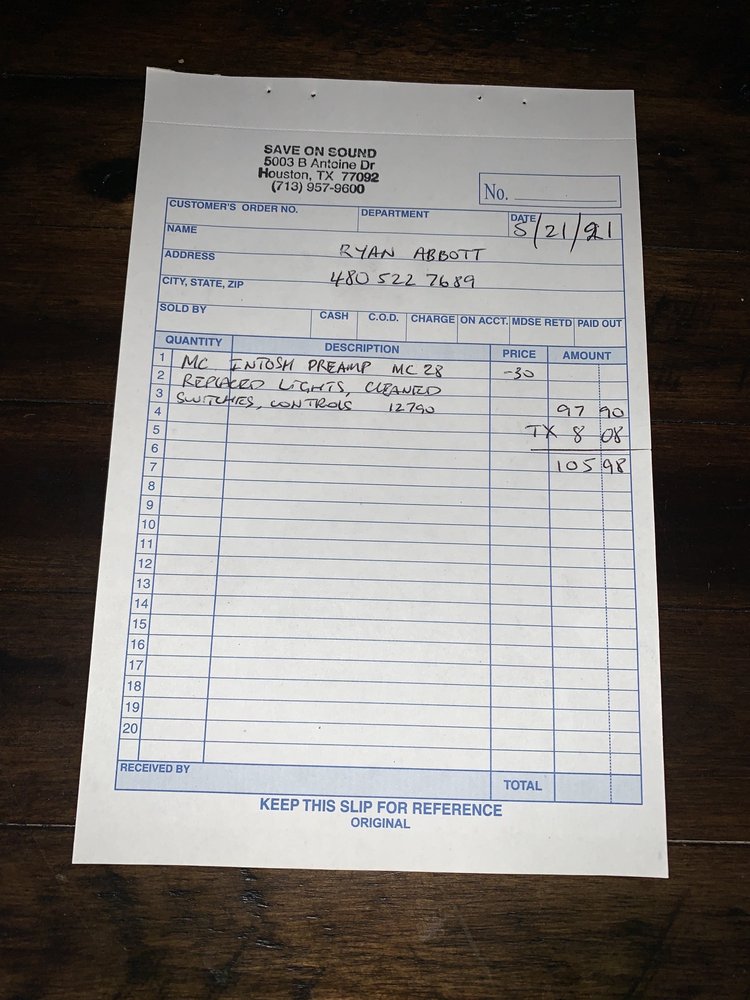 SAVE ON SOUND
5003 B Antoine Dr
Houston, TX 77092
(713) 957-9600
No.
CUSTOMER'S ORDER NO. DEPARTMENT DATE 5/21/21
NAME
RYAN ABBOTT
ADDRESS
480 522 7689
CITY, STATE, ZIP
SOLD BY CASH C.O.D. CHARGE ON ACCT. MDSE RETD PAID OUT
QUANTITY DESCRIPTION PRICE AMOUNT
1 MC INTOSH PREAMP MC 28 -30
2 REPLACED LIGHTS, CLEANED
3 SWITCHES, CONTROLS 12790 97 90
4
5 TX 8 08
6
7 105 98
8
9
10
11
12
13
14
15
16
17
18
19
20
RECEIVED BY TOTAL
KEEP THIS SLIP FOR REFERENCE
ORIGINAL